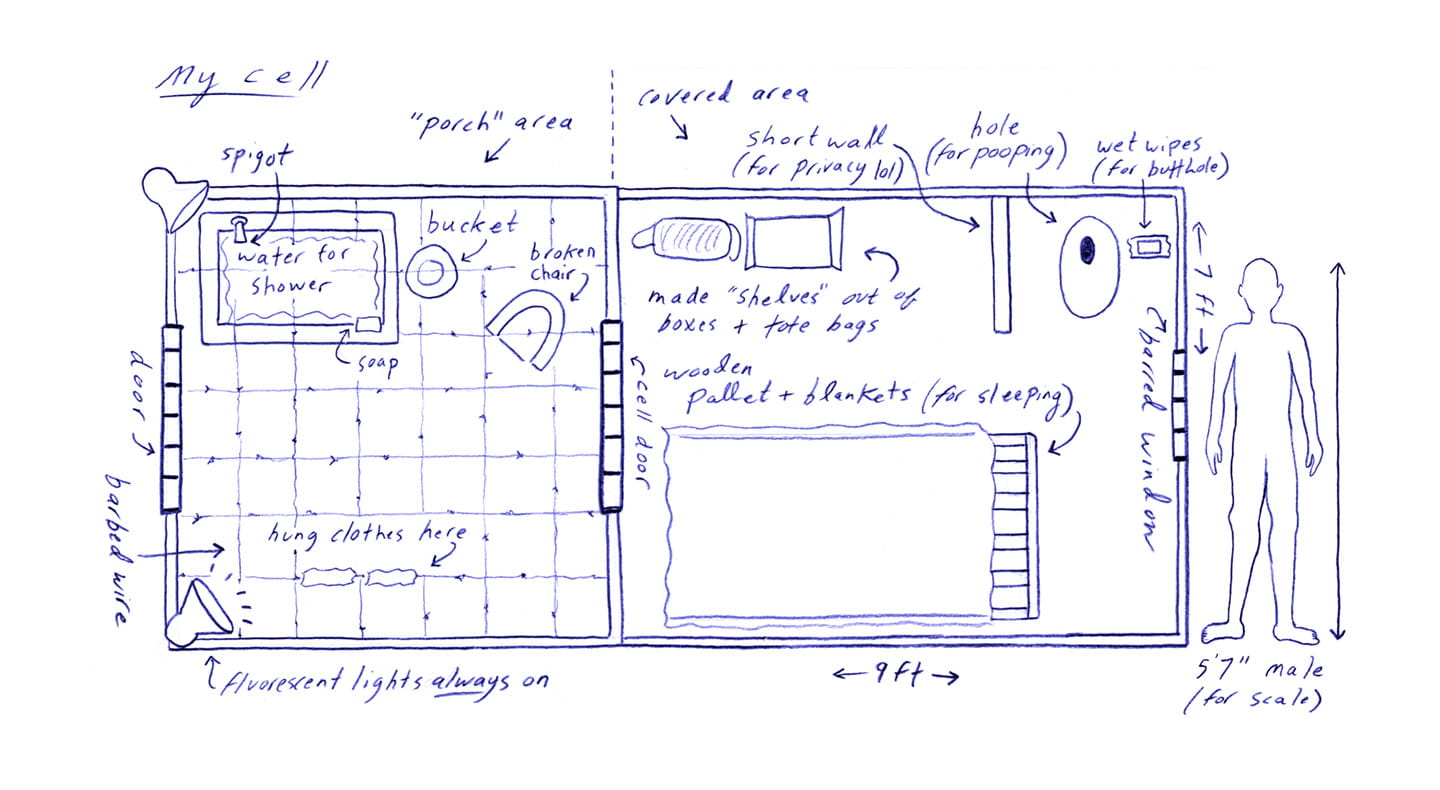 My cell
"porch" area
covered area
spigot
short wall
(for privacy lol)
hole
(for pooping)
wet wipes
(for butthole)
bucket
broken
chair
water for
shower
soap
made "shelves" out of
boxes + tote bags
7 ft
barred window
door
cell door
wooden
pallet + blankets (for sleeping)
barbed wire
hung clothes here
fluorescent lights always on
9 ft
5'7" male
(for scale)